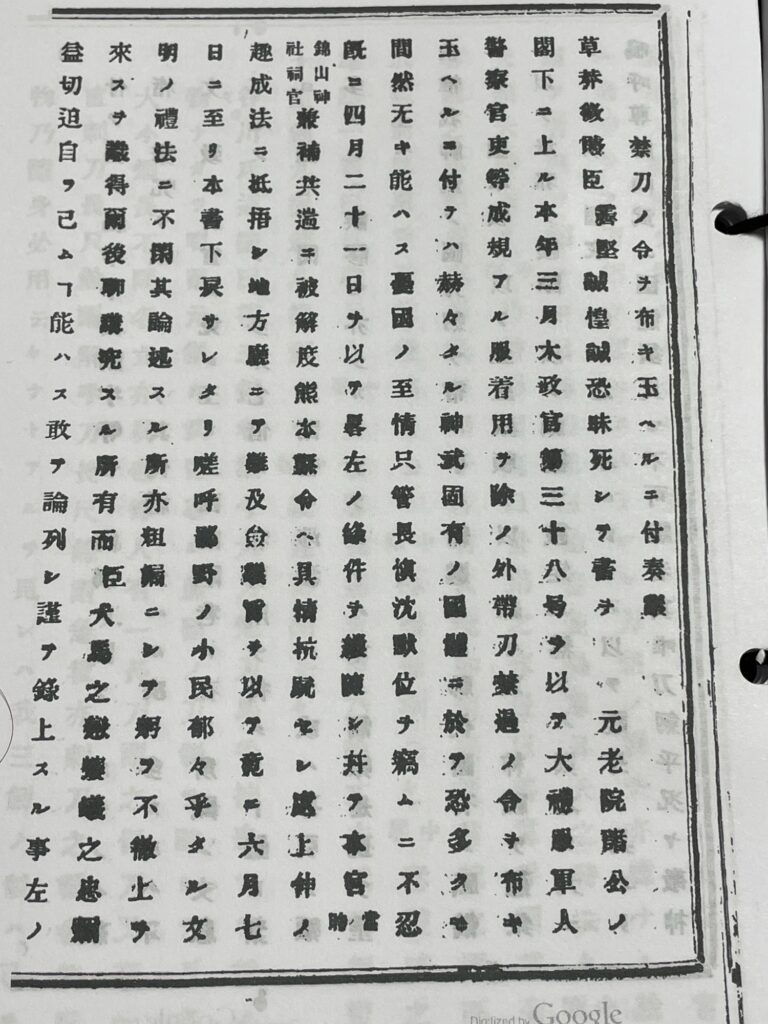 禁刀ノ令ヲ布キ玉ヘルニ付奏議
草莽微賤臣 霽堅誠惶誠恐昧死シテ書ヲ 元老院諸公ノ
閣下ニ上ル本年三月太政官第三十八号ヲ以テ大禮服軍人
警察官吏等成規アル服着用ヲ除ノ外帶刀禁過ノ令ヲ布キ
玉ヘルニ付テハ赫々タル神武固有ノ國體ニ於テ恐多クモ
間然无キ能ハス憂國ノ至情只管長慎沈默位ヲ竊ムニ不忍
既ニ四月二十一日ヲ以テ畧左ノ條件ヲ縷陳シ并テ本官 當時
錦山神社祠官 兼補共適ニ被解度熊本縣令ヘ具情抗疏セシ處上伸ノ
趣成法ニ抵捂シ地方廳ニテ難及僉議旨ヲ以テ竟ニ六月七
日ニ至リ本書下戻サレタリ嗟呼鄙野ノ小民都々乎タル文
明ノ禮法ニ不閑其論述スル所亦粗漏ニシテ躬ヲ不徹上ヲ
來スヲ識得爾後聊講究スル所有而臣犬馬之戀螻蟻之忠
益切迫自ラ已ムヿ能ハス敢テ論列シ謹テ錄上スル事左ノ
Digitized by Google